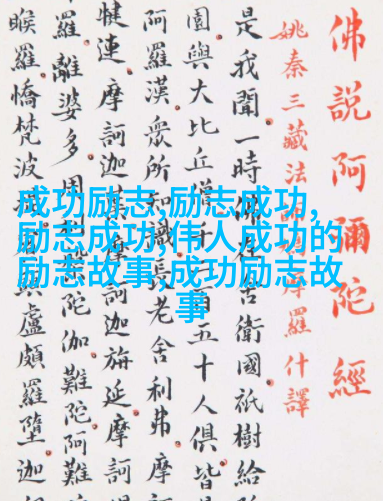 佛說阿彌陀經
姚秦三藏法摩羅什譯
是我聞一時佛在舍衛國祇樹給
園與大比丘僧千二百五十人俱皆
阿羅漢眾所知識長老舍利弗摩訶
犍連摩訶迦葉摩訶迦旃延摩訶
羅離婆多周利陀伽難陀阿難
睺羅憍梵波盧頗羅墮迦
成功励志,励志成功,
励志成功,伟人成功的
励志故事,成功励志故
事